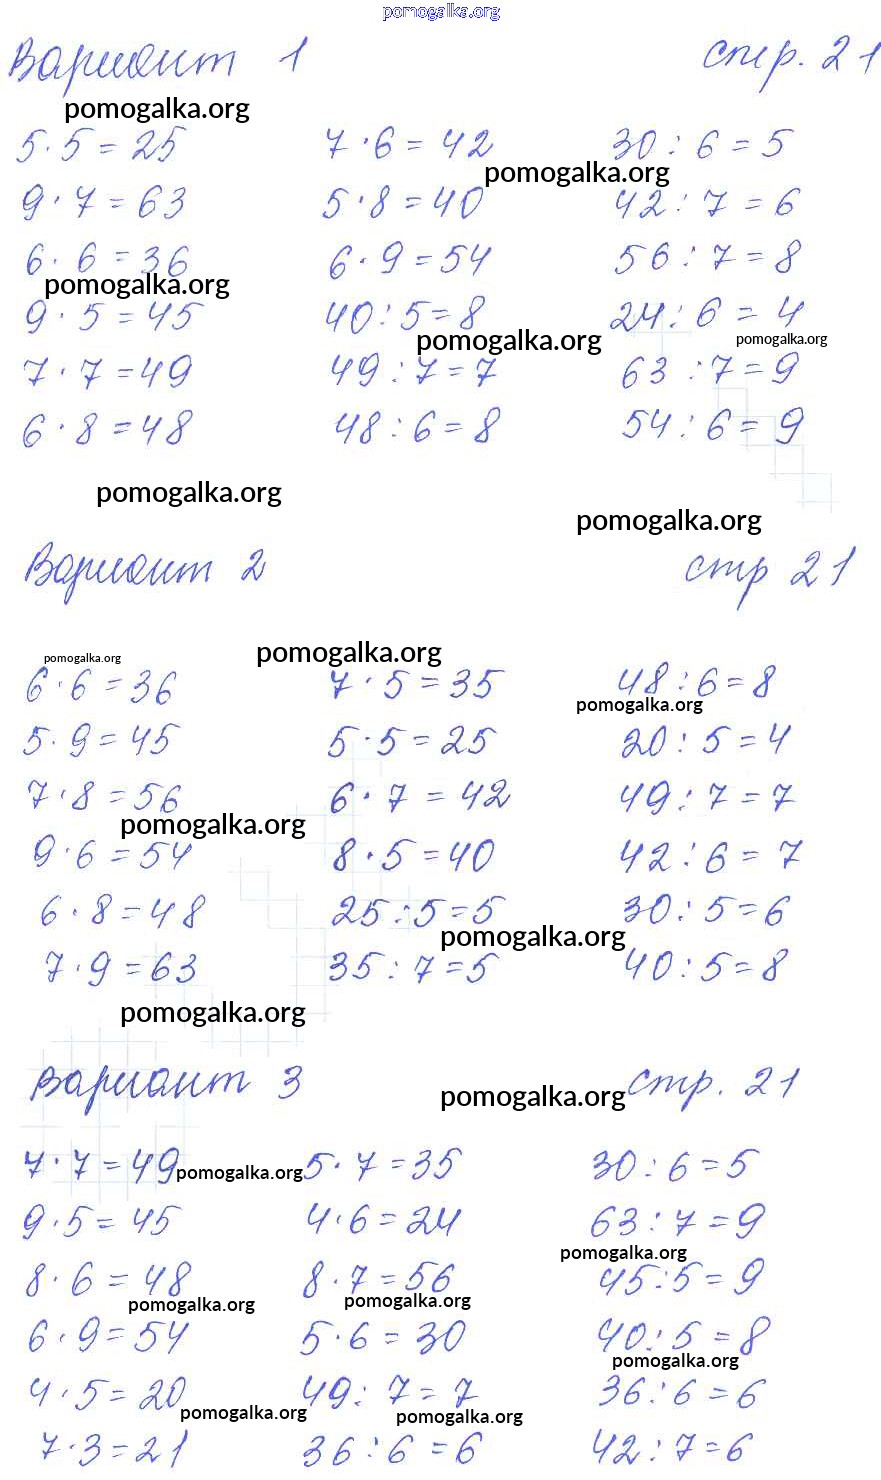 pomogalka.org
Вариант 1 стр. 21
pomogalka.org
5·5=25 7·6=42 30:6=5
pomogalka.org
9·7=63 5·8=40 42:7=6
6·6=36 6·9=54 56:7=8
pomogalka.org
9·5=45 40:5=8 24:6=4
pomogalka.org pomogalka.org
7·7=49 49:7=7 63:7=9
6·8=48 48:6=8 54:6=9
pomogalka.org
pomogalka.org
Вариант 2 стр 21
pomogalka.org pomogalka.org
6·6=36 7·5=35 48:6=8
pomogalka.org
5·9=45 5·5=25 20:5=4
7·8=56 6·7=42 49:7=7
pomogalka.org
9·6=54 8·5=40 42:6=7
6·8=48 25:5=5 30:5=6
pomogalka.org
7·9=63 35:7=5 40:5=8
pomogalka.org
Вариант 3 стр. 21
pomogalka.org
7·7=49 5·7=35 30:6=5
pomogalka.org
9·5=45 4·6=24 63:7=9
pomogalka.org
8·6=48 8·7=56 45:5=9
pomogalka.org pomogalka.org
6·9=54 5·6=30 40:5=8
pomogalka.org
4·5=20 49:7=7 36:6=6
pomogalka.org pomogalka.org
7·3=21 36:6=6 42:7=6